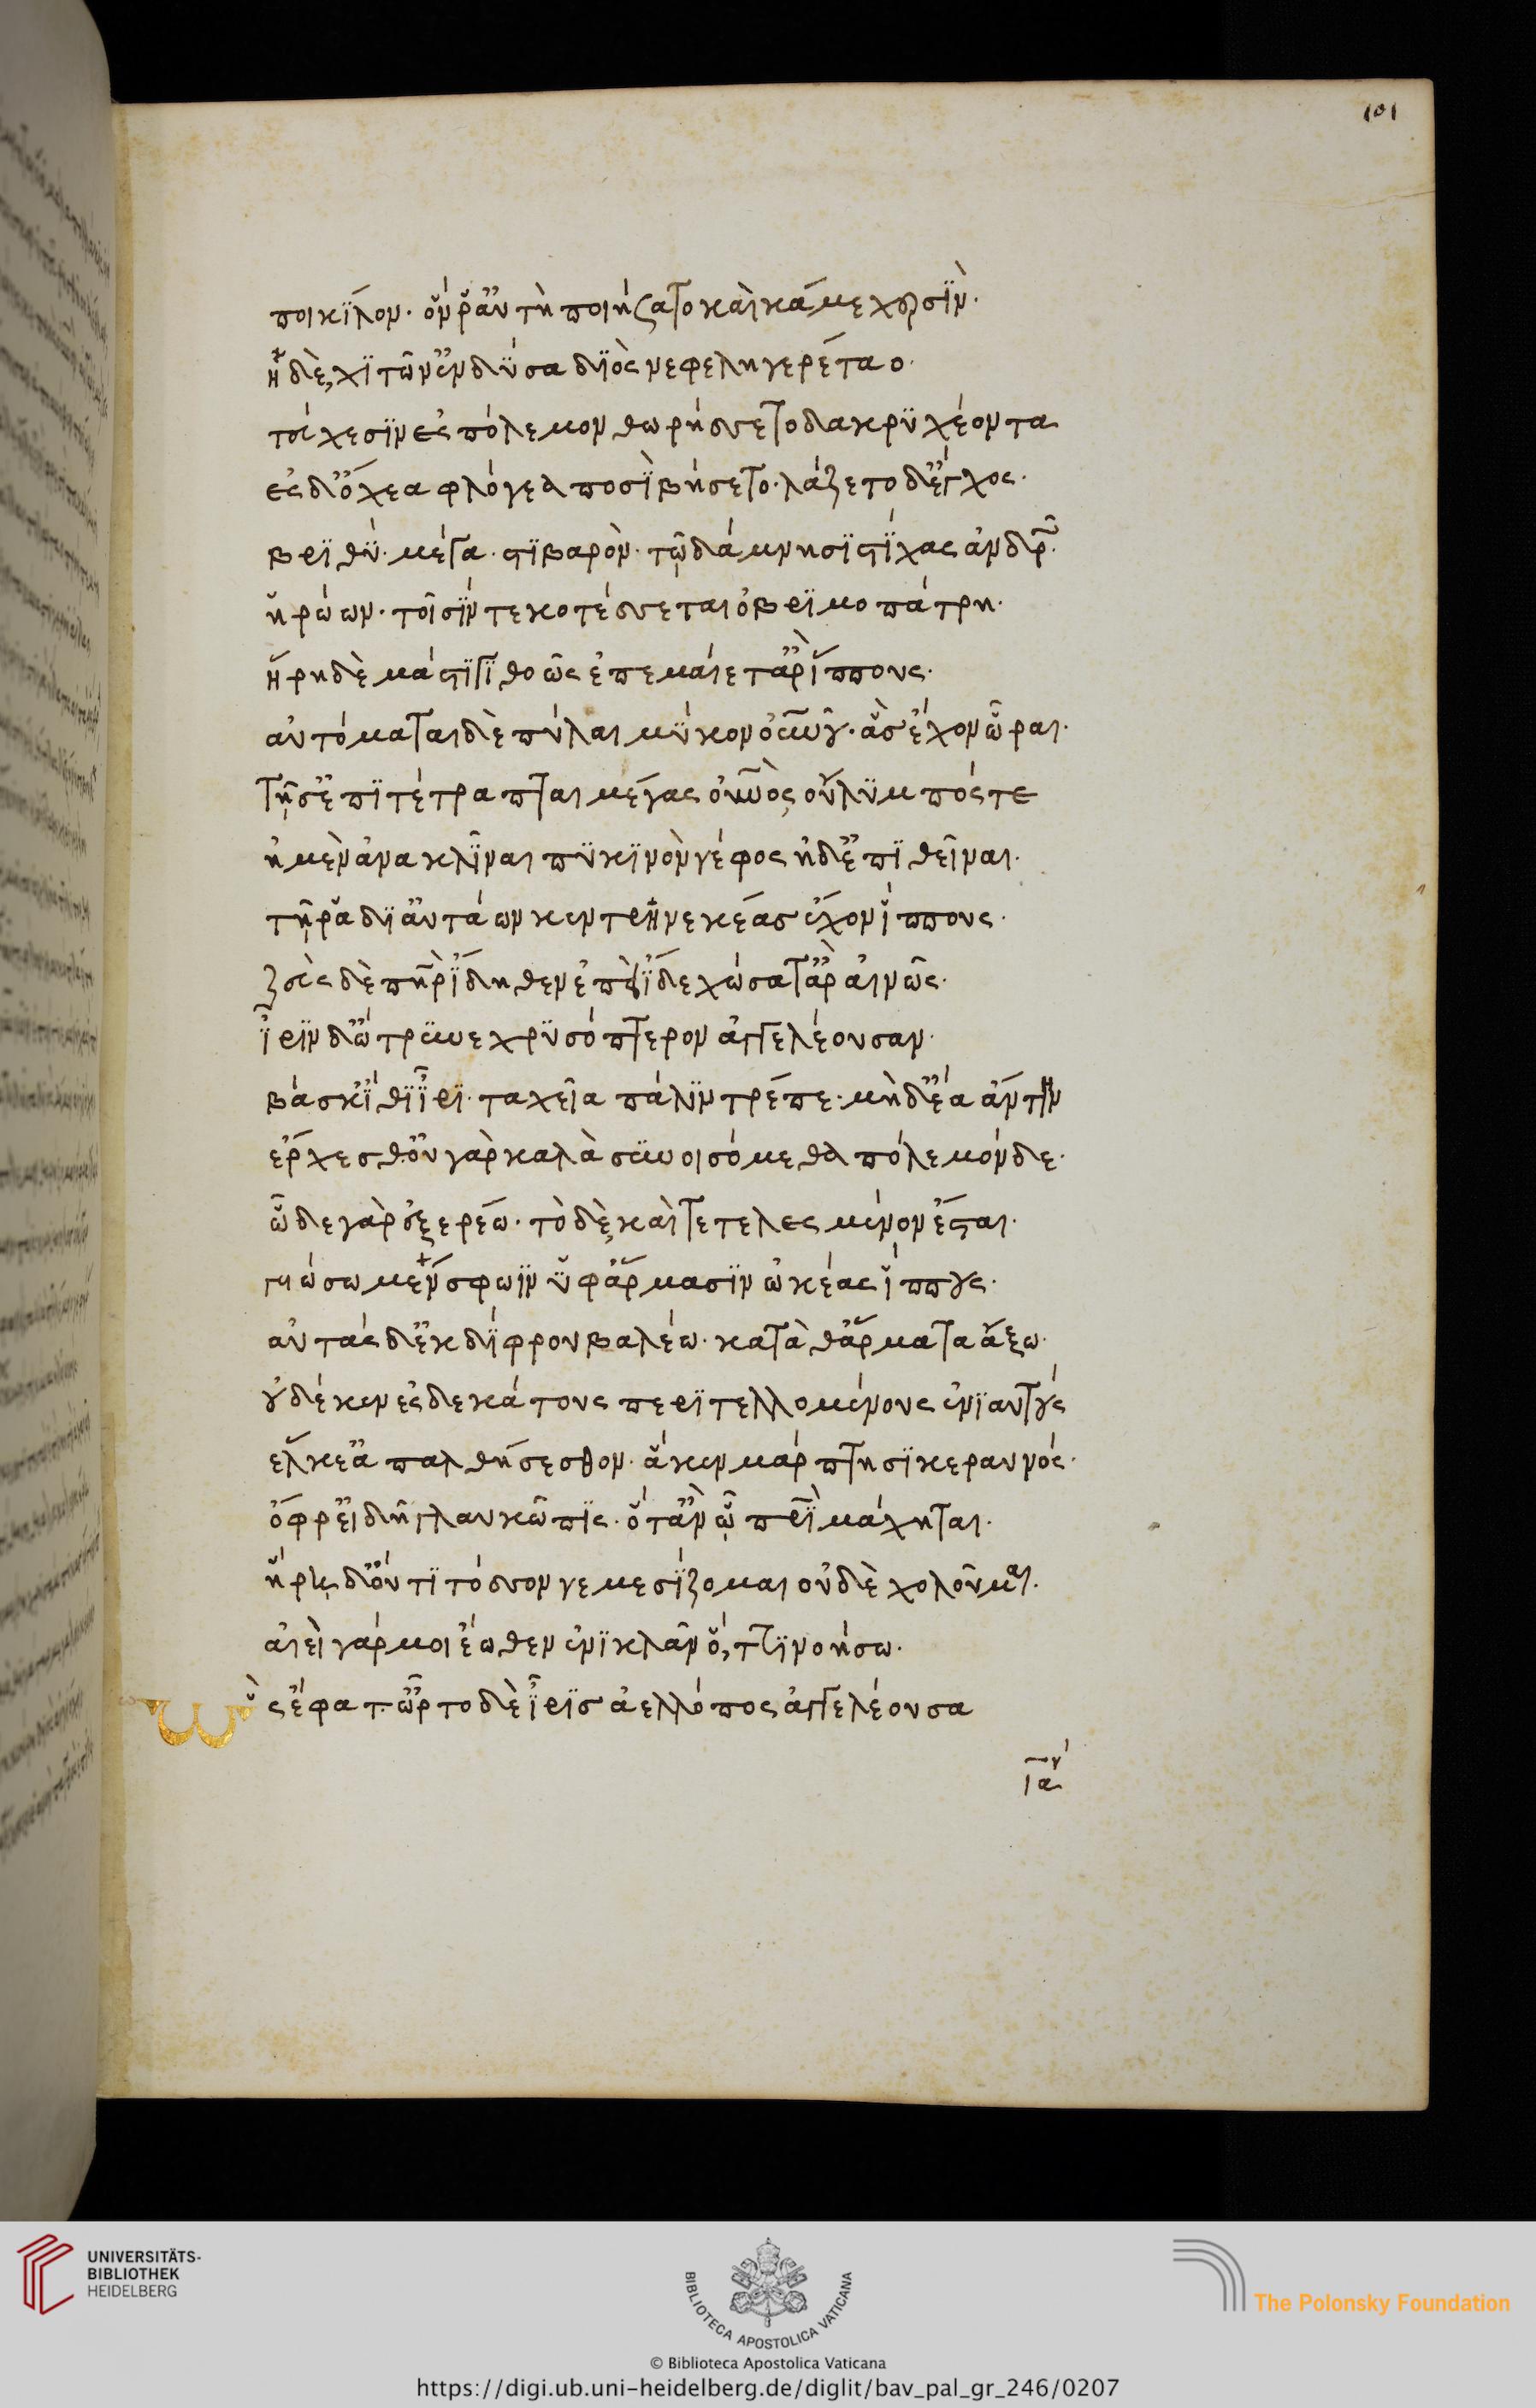 101
ποικίλον. ὅν ῥ' αὐτὴ ποιήσατο καὶ κάμε χερσίν.
ἡ δὲ, χιτῶν' ἐνδῦσα διὸς νεφεληγερέταο.
τεύχεσιν ἐς πόλεμον θωρήσσετο δακρυχέοντα
ἐς δ' ὄχεα φλόγεα ποσὶ βήσετο. λάζετο δ' ἔγχος.
βριθύ. μέγα. στιβαρόν. τῷ δάμνησι στίχας ἀνδρῶν.
ἡρώων. τοῖσίν τε κοτέσσεται ὀβριμοπάτρη.
ἥρη δὲ μάστιγι θοῶς ἐπεμαίετ' ἄρ' ἵππους.
αὐτόμαται δὲ πύλαι μύκον οὐνοῦ. ἃς ἔχον ὧραι.
τῇς ἐπιτέτραπται μέγας οὐνὸς, οὔλυμπός τε
ἠμὲν ἀνακλῖναι πυκινὸν νέφος ἠδ' ἐπιθεῖναι.
τῇ ῥα δι' αὐτάων κεντρηνεκέας ἔχον ἵππους.
ζεὺς δὲ πὴρ ἴδηθεν ἐπεὶ ἴδε χώσατ' ἄρ' αἰνῶς.
ἶριν δ' ὤτρυνε χρυσόπτερον ἀγγελέουσαν.
βάσκ' ἴθι ἶρι. ταχεῖα πάλιν τρέπε. μὴ δ' ἔα ἄντην
ἔρχεσθ' οὐ γὰρ καλὰ συνοισόμεθα πόλεμόνδε.
ὧδε γὰρ ἐξερέω. τὸ δὲ, καὶ τετελεσμένον ἔσται.
γυιώσω μέν σφωιν ὑφ' ἅρμασιν ὠκέας ἵππους.
αὐτὰς δ' ἐκ δίφρου βαλέω. κατὰ θ' ἅρματα ἄξω.
οὐδέ κεν ἐς δεκάτους περιτελλομένους ἐνιαυτούς
ἕλκε' ἀπαλθήσεσθον. ἅ κεν μάρπτησι κεραυνός.
ὄφρ' εἰδῇ γλαυκῶπις. ὅτ' ἂν ᾧ πρὶ μάχηται.
ἥρῃ δ' οὔτι τόσσον νεμεσίζομαι οὐδὲ χολοῦμαι.
αἰεὶ γάρ μοι ἔωθεν ἐνικλᾶν ὅ,ττι νοήσω.
ὣς ἔφατ' ὦρτο δὲ ἶρις ἀελλόπος ἀγγελέουσα
UNIVERSITÄTS-
BIBLIOTHEK
HEIDELBERG
BIBLIOTECA APOSTOLICA VATICANA
The Polonsky Foundation
© Biblioteca Apostolica Vaticana
https://digi.ub.uni-heidelberg.de/diglit/bav_pal_gr_246/0207